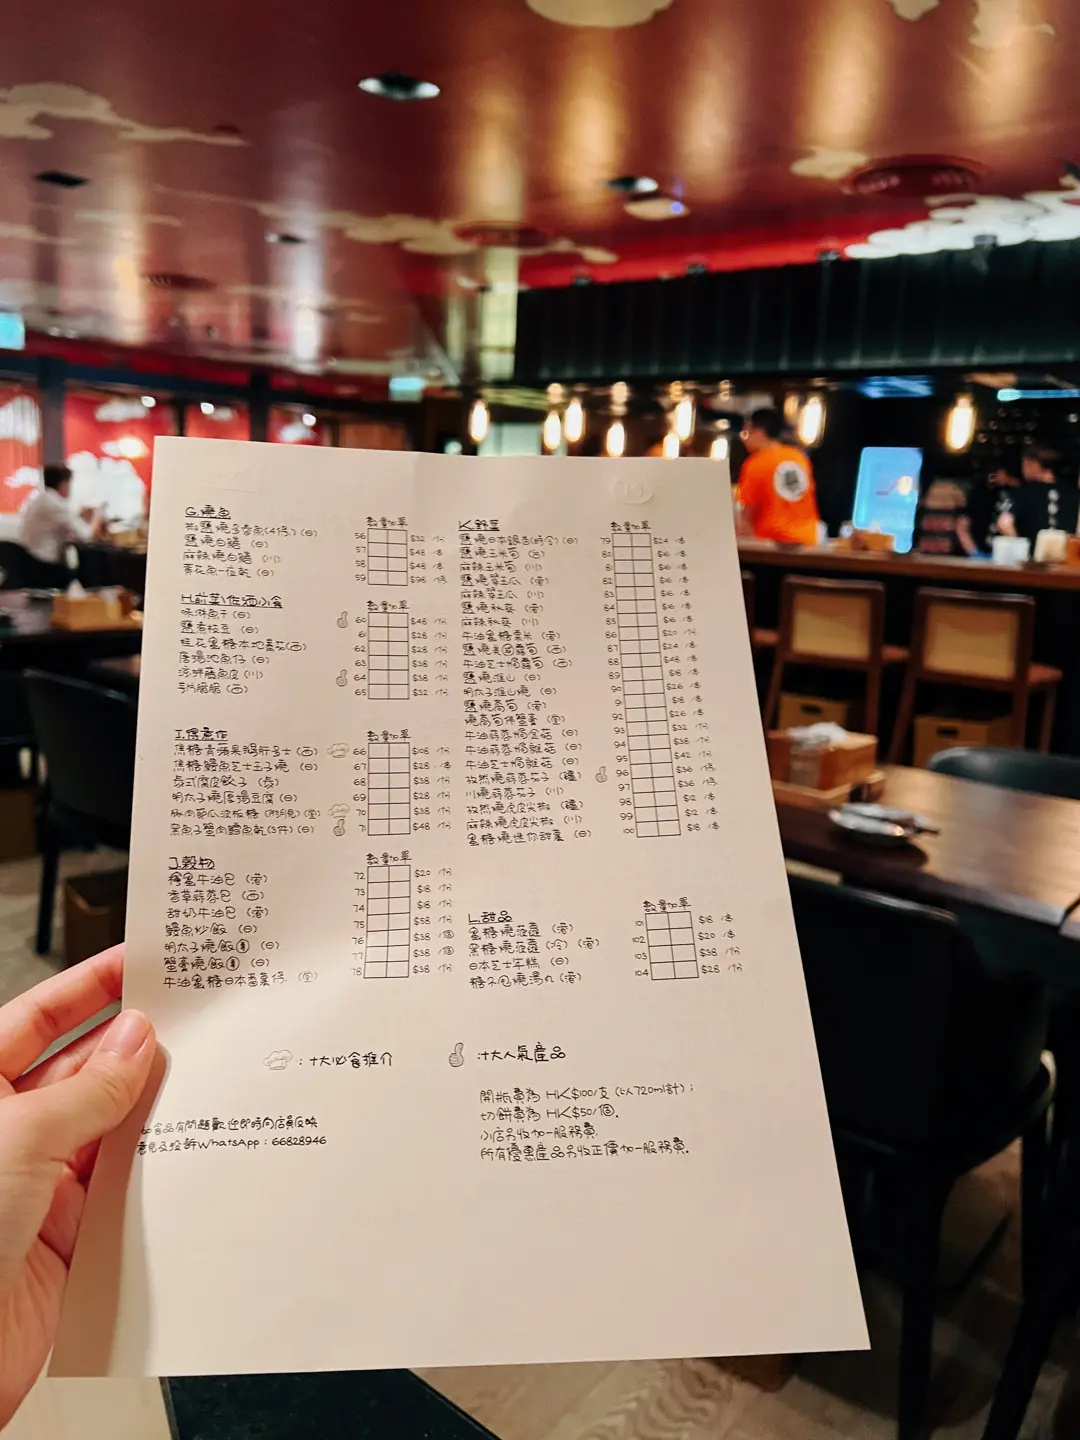 G.燒魚
數量加單
椒鹽燒多春魚(4條)(日) 56 $32 /份
鹽燒白鱔 (日) 57 $48 /串
麻辣燒白鱔 (川) 58 $48 /串
青花魚一位乾 (日) 59 $98 /條
H.前菜/佐酒小食
數量加單
味淋魚干 (日) 60 $48 /份
鹽煮枝豆 (日) 61 $28 /份
桂花蜜糖本地番茄(西) 62 $28 /份
唐揚池魚仔 (日) 63 $38 /份
涼拌魚皮 (川) 64 $38 /份
脆脆 (西) 65 $32 /份
I.得意作
數量加單
焦糖青蘋果鵝肝多士 (西) 66 /份
焦糖鰻魚芝士玉子燒 (日) 67 $28 /串
泰式腐皮餃子 (泰) 68 $38 /份
明太子燒唐揚豆腐 (日) 69 $28 /份
70 $38 /份
黑魚子蟹肉鱈魚乾(3件)(日) 71 $48 /份
J.穀物
數量加單
蜜牛油包 (港) 72 $20 /份
香草蒜蓉包 (西) 73 $18 /份
甜奶牛油包 (港) 74 $18 /份
鰻魚炒飯 (日) 75 $58 /份
明太子燒飯 (日) 76 $38 /個
蟹膏燒飯 (日) 77 $38 /個
牛油蜜糖日本番薯條 78 $38 /份
K.野菜
數量加單
鹽燒日本銀杏(時令)(日) 79 $24 /串
鹽燒玉米筍 80 $16 /串
麻辣玉米筍 (川) 81 $16 /串
鹽燒翠玉瓜 (港) 82 $16 /串
麻辣翠玉瓜 (川) 83 $16 /串
鹽燒秋葵 (港) 84 $16 /串
麻辣秋葵 (川) 85 $16 /串
牛油蜜糖粟米 (港) 86 $20 /份
鹽燒美國露筍 (西) 87 $24 /串
牛油芝士焗露筍 (西) 88 $48 /串
鹽燒淮山 (日) 89 $18 /串
明太子淮山燒 (日) 90 $26 /串
鹽燒萵筍 (港) 91 $18 /串
燒萵筍伴蟹膏 92 $26 /串
牛油蒜蓉焗金菇 (日) 93 $32 /份
牛油蒜蓉焗雜菇 (日) 94 $38 /份
牛油芝士焗雜菇 (日) 95 $42 /份
孜然燒蒜蓉茄子 (疆) 96 $36 /條
川燒蒜蓉茄子 (川) 97 $36 /條
孜然燒虎皮尖椒 (疆) 98 $12 /串
麻辣燒虎皮尖椒 (川) 99 $12 /串
蜜糖燒迷你甜薯 (日) 100 $18 /串
L.甜品
數量加單
蜜糖燒菠蘿 (港) 101 $18 /串
黑糖燒菠蘿 (冷) (港) 102 $20 /串
日本芝士年糕 (日) 103 $38 /份
糖不甩燒湯丸 (港) 104 $28 /份
:十大必食推介
:十大人氣產品
開瓶費為 HK$100/支 (以720ml計);
切餅費為 HK$50/個。
小店另收加一服務費.
所有優惠產品另收正價加一服務費.
如食品有問題歡迎即時向店員反映
意見及投訴WhatsApp:66828946